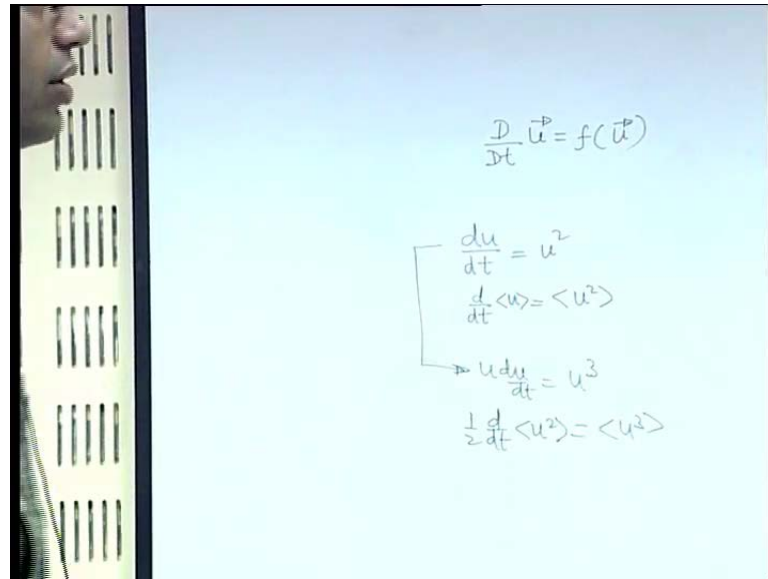 D/Dt u⃗ = f(u⃗)
du/dt = u²
d/dt <u> = <u²>
u du/dt = u³
1/2 d/dt <u²> = <u³>